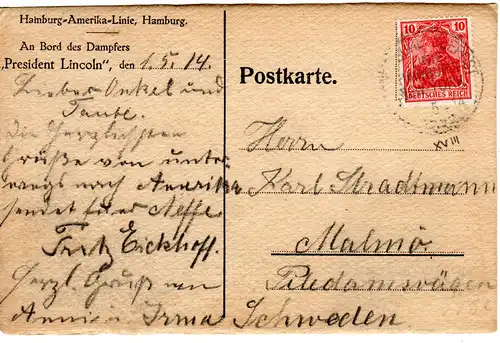 Hamburg-Amerika-Linie, Hamburg.
An Bord des Dampfers
"President Lincoln", den 1.5.14.
Lieber Onkel und
Tante.
Die herzlichsten
Grüße von unter
wegs nach Amerika
sendet Neffe
Fritz Eickhoff.
Herzl. Gruß von
Irma
Postkarte.
10 10
DEUTSCHES REICH
XVIII
Herrn
Karl Stradtmann
Malmö.
Pildamsvägen
Schweden